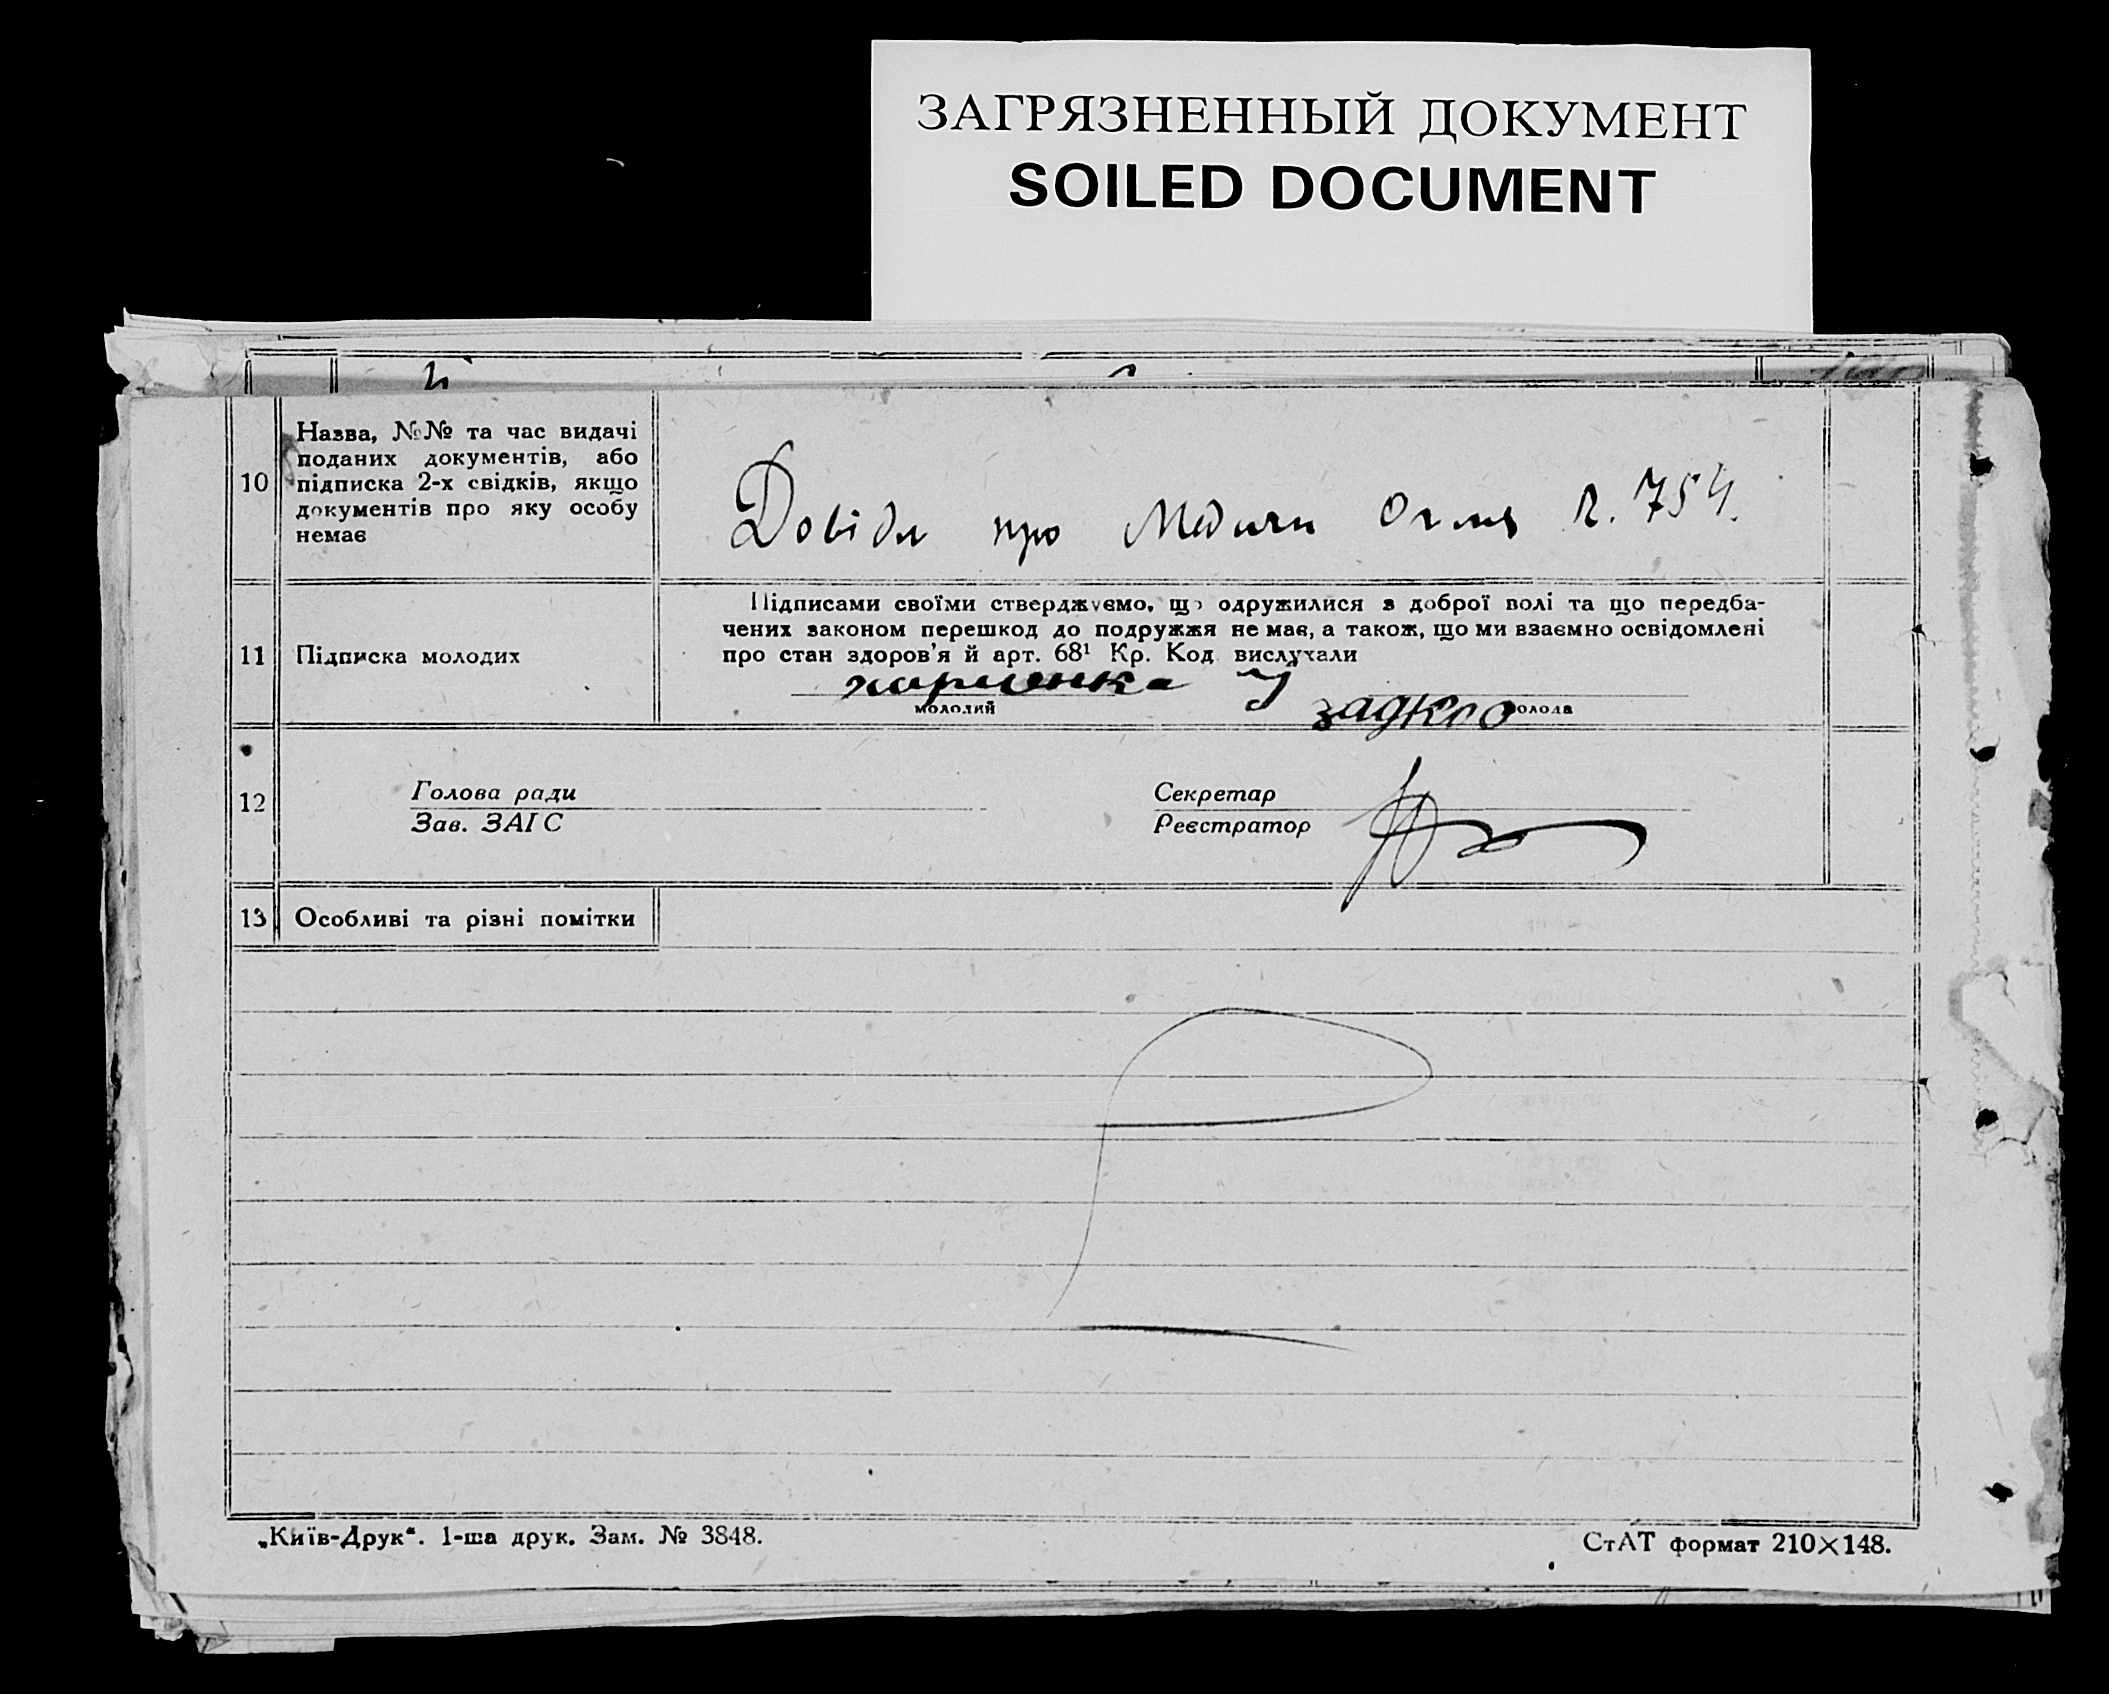 ЗАГРЯЗНЕННЫЙ ДОКУМЕНТ
SOILED DOCUMENT
10
Назва, №№ та час видачі
поданих документів, або
підписка 2-х свідків, якщо
документів про яку особу
немає
Довідк про Медичн Огляд 754.
11
Підписка молодих
Підписами своїми стверджуємо, що одружилися з доброї волі та що передба-
чених законом перешкод до подружжя не має, а також, що ми взаємно освідомлені
про стан здоров'я й арт. 68¹ Кр. Код вислухали
молодий
молода
12
Голова ради
Зав. ЗАГС
Секретар
Реєстратор
13
Особливі та різні помітки
„Київ-Друк“. 1-ша друк. Зам. № 3848.
СтАТ формат 210×148.